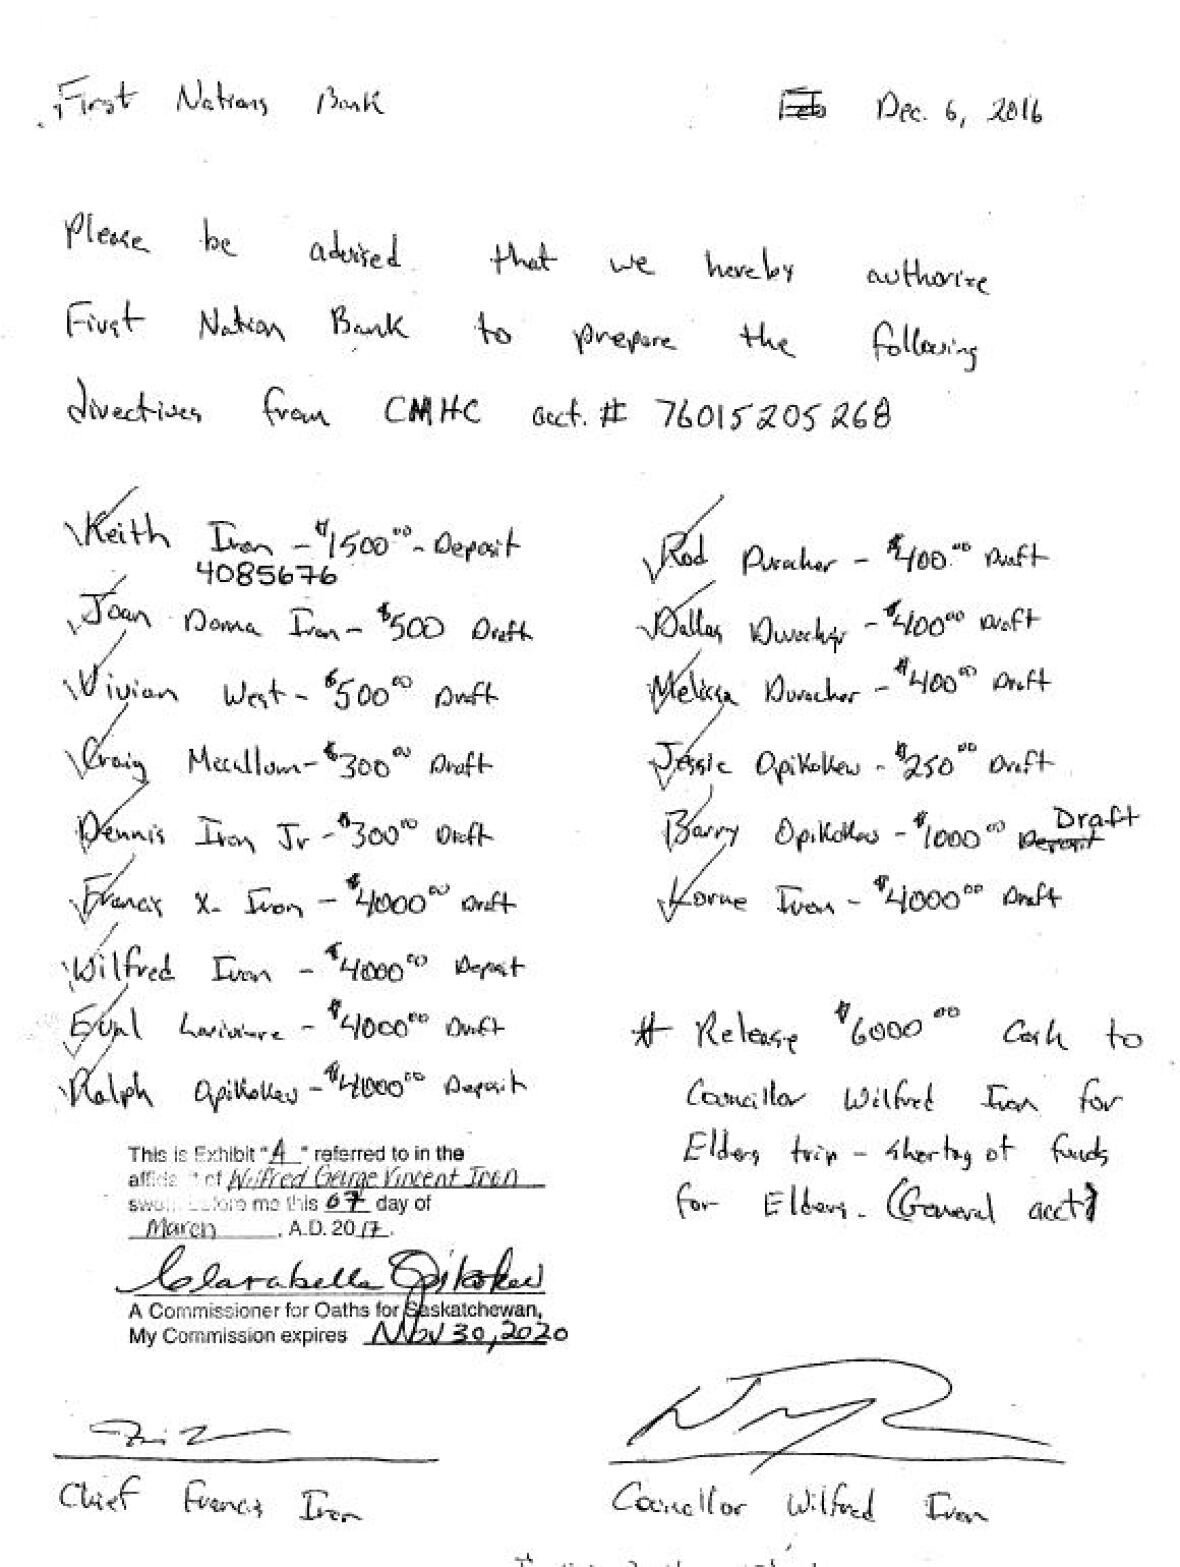 First Nations Bank
Dec. 6, 2016
Please be advised that we hereby authorize
First Nation Bank to prepare the following
directives from CMHC acct. # 76015205268
Keith Iron - $1500.00 - Deposit
4085676
Joan Donna Iron - $500 Draft
Vivian West - $500.00 Draft
Craig Mccallum - $300.00 Draft
Dennis Iron Jr - $300.00 Draft
Francis X. Iron - $4000.00 Draft
Wilfred Iron - $4000.00 Deposit
Eval Lariviere - $4000.00 Draft
Ralph Opikokew - $4000.00 Deposit
Rod Durocher - $400.00 Draft
Dallas Durocher - $400.00 Draft
Melissa Durocher - $400.00 Draft
Jessie Opikokew - $250.00 Draft
Barry Opikokew - $1000.00 Deposit Draft
Lorne Iron - $4000.00 Draft
# Release $6000.00 Cash to
Councillor Wilfred Iron for
Elders trip - shortag of funds
for Elders. (General acct)
This is Exhibit "A" referred to in the
affidavit of Wilfred George Vincent Iron
sworn before me this 07 day of
March, A.D. 2017.
Clarabella Opikokew
A Commissioner for Oaths for Saskatchewan,
My Commission expires Nov 30, 2020
Chief Francis Iron
Councillor Wilfred Iron